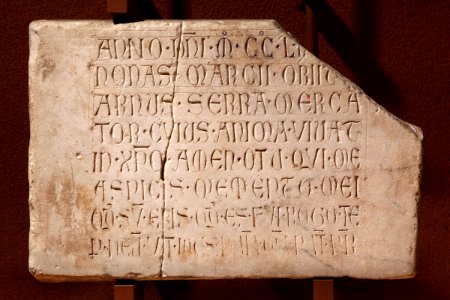 ANNO · DNI · M · CC · L
NONAS · MARCII · OBIIT
ARNUS · SERRA · MERCA
TOR · CUIUS · ANIMA · VIVAT
IN · XPO · AMEN · O TU · QUI · ME
ASPICIS · MEMENTO · MEI
QD · SU · ERIS · QD · ES · FUI · ROGO · TE
P · ME